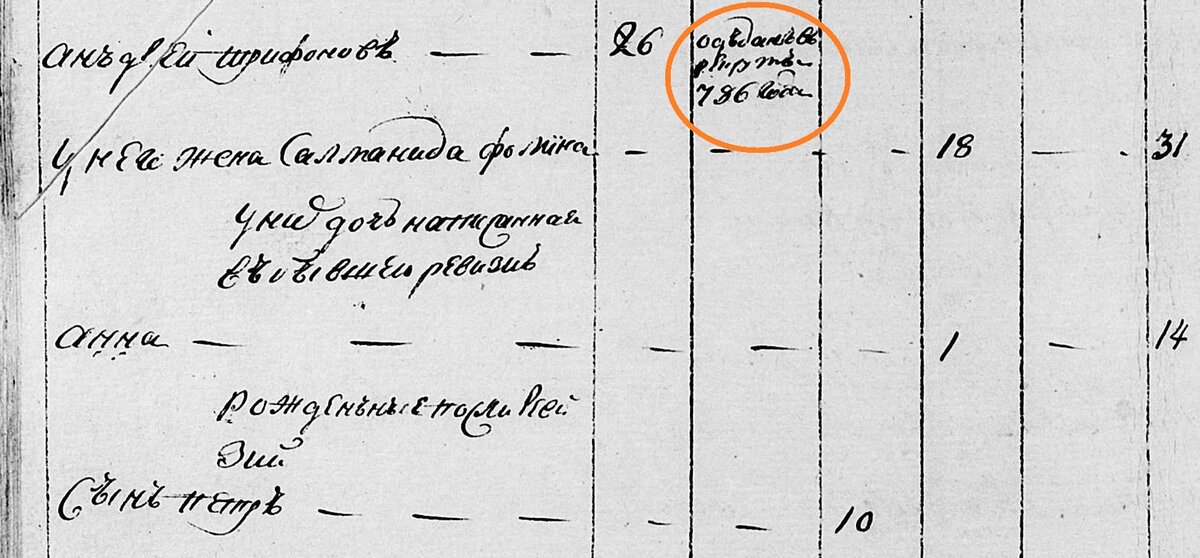 анъдрей трифоновъ — — 26
одъданъ въ
рекруты
786 года
у него жена Салманида фомина - - - - 18 — - 31
у них дочь написанная
въ бывшею ревизию
анна — — — — — — 1 — 14
рожденъные после реви
зии
Сынъ петръ — — — — — 10